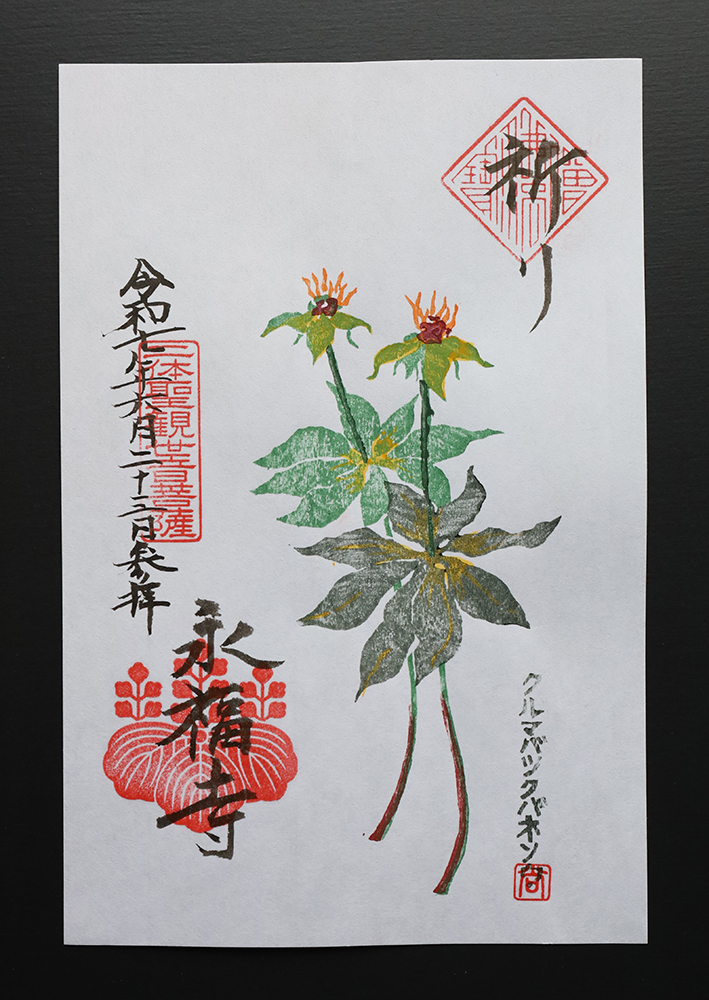 祈り
クルマバツクバネソウ
令和七年六月二十三日参拝
三体聖観世音菩薩
永福寺